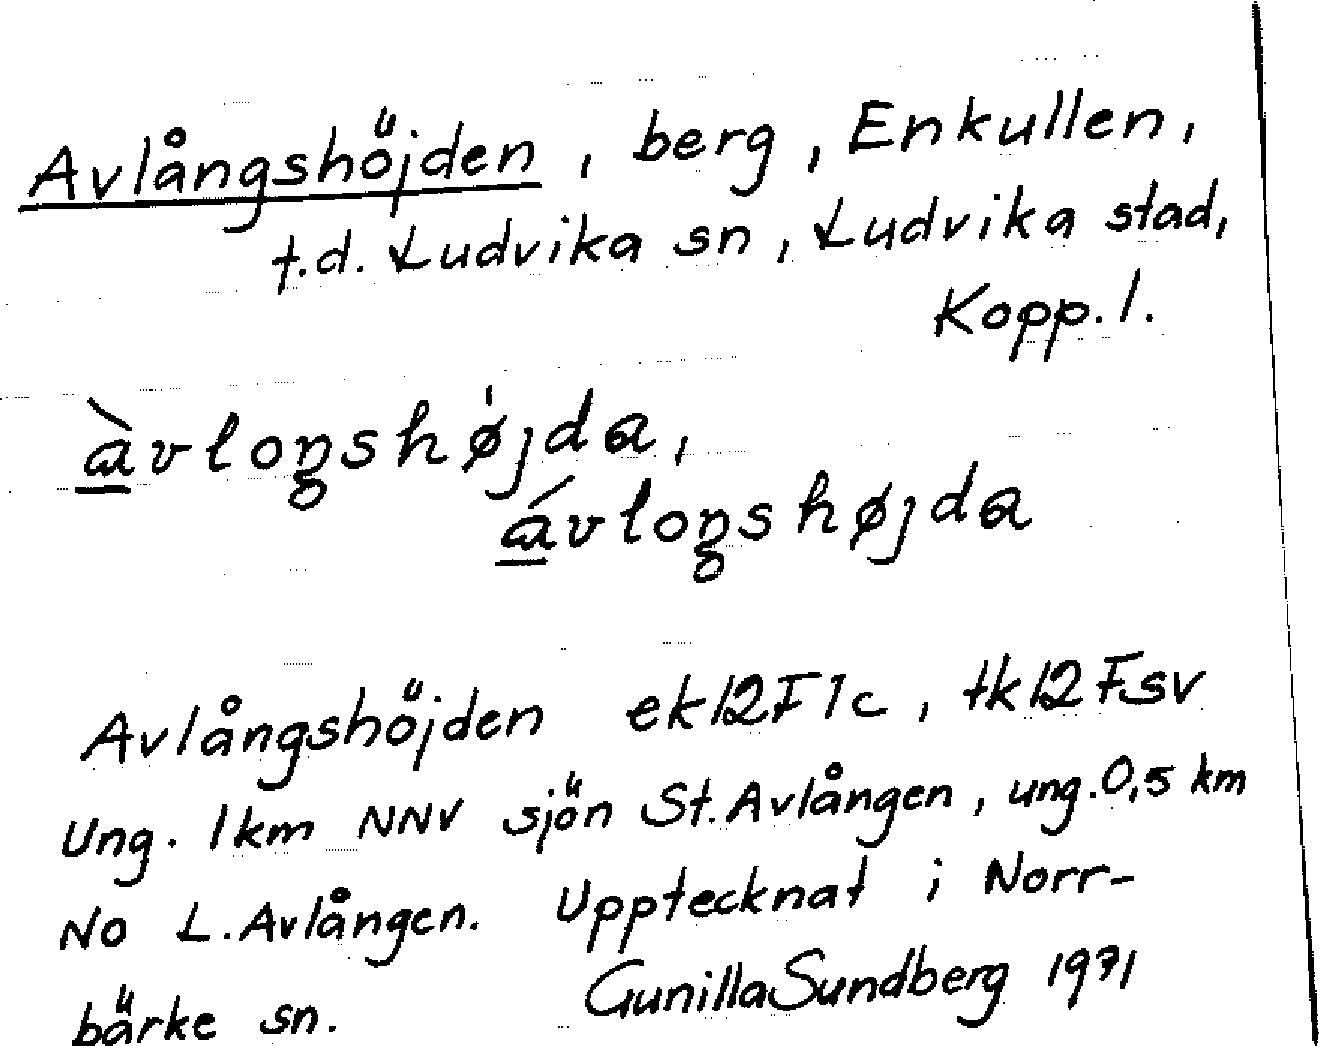 Avlångshöjden, berg, Enkullen,
t.d. Ludvika sn, Ludvika stad,
Kopp. l.
à̲vloŋshø̍jda,
á̲vloŋshøjda
Avlångshöjden ek12F1c, tk12Fsv
Ung. 1 km NNV sjön St. Avlången, ung. 0,5 km
No L. Avlången. Upptecknat i Norr-
bärke sn. Gunilla Sundberg 1971